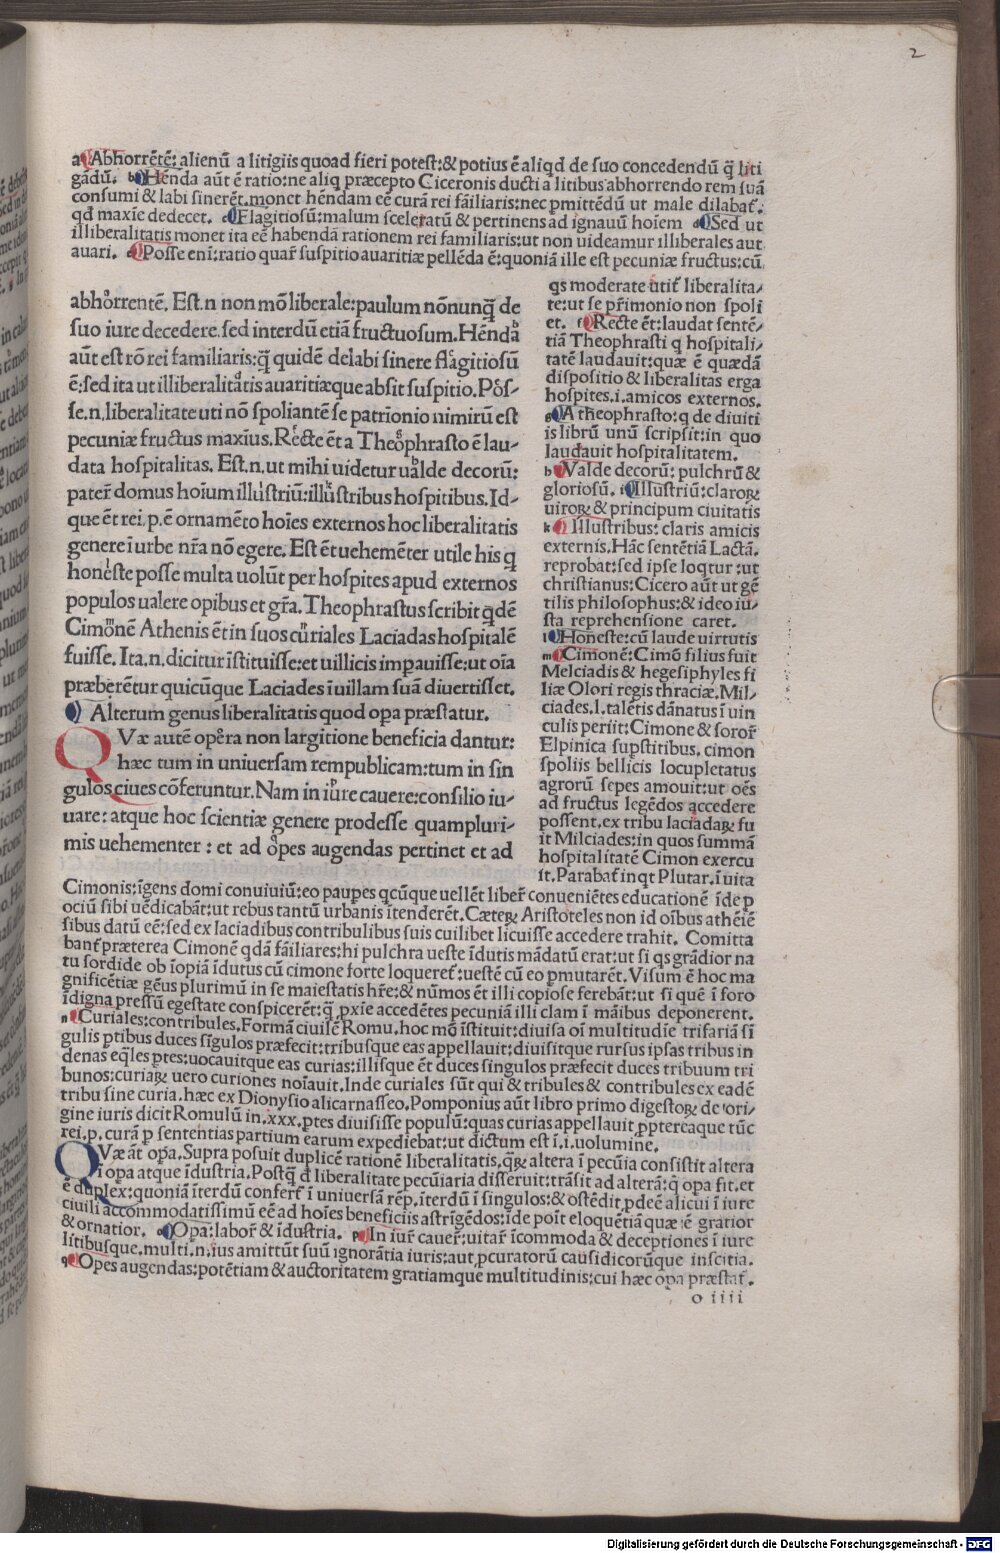 2
a Abhorrẽtẽ: alienũ a litigiis quoad fieri potest:& potius ẽ aliqd de suo concedendũ q̃ liti
gãdũ. b Hẽnda aũt ẽ ratio:ne aliq præcepto Ciceronis ducti a litibus abhorrendo rem suã
consumi & labi sinerẽt.monet hẽndam eẽ curã rei fãiliaris:nec pmittẽdũ ut male dilabat̃.
qd maxĩe dedecet. c Flagitiosũ:malum sceleratũ & pertinens ad ignauũ hoiem d Sed ut
illiberalitatis monet ita eẽ habendã rationem rei familiaris:ut non uideamur illiberales aut
auari. e Posse enĩ:ratio quar̃ suspitio auaritiæ pellẽda ẽ:quoniã ille est pecuniæ fructus:cũ
abhorrentẽ. Est.n non mõ liberale:paulum nõnunq̃ de
suo iure decedere.sed interdũ etiã fructuosum.Hẽnda
aũt est rõ rei familiaris:q̃ quidẽ delabi sinere flagitiosũ
ẽ:sed ita ut illiberalitatis auaritiæque absit suspitio.Pos-
se.n.liberalitate uti nõ spoliantẽ se patrionio nimirũ est
pecuniæ fructus maxĩus.Recte ẽt a Theophrasto ẽ lau-
data hospitalitas. Est.n.ut mihi uidetur ualde decorũ:
pater̃ domus hoĩum illustriũ:illustribus hospitibus.Id-
que ẽt rei.p.ẽ ornamẽto hoĩes externos hoc liberalitatis
genere ĩ urbe nr̃a nõ egere. Est ẽt uehemẽter utile his q
honeste posse multa uolũt per hospites apud externos
populos ualere opibus et gr̃a.Theophrastus scribit qdẽ
Cimonẽ Athenis ẽt in suos curiales Laciadas hospitalẽ
fuisse. Ita.n.dicitur ĩstituisse:et uillicis impauisse:ut oĩa
præberẽtur quicũque Laciades ĩ uillam suã diuertisset.
Alterum genus liberalitatis quod opa præstatur.
QVæ autẽ opera non largitione beneficia dantur:
hæc tum in uniuersam rempublicam:tum in sin
gulos ciues cõferuntur.Nam in iure cauere:consilio iu-
uare: atque hoc scientiæ genere prodesse quampluri-
mis uehementer : et ad opes augendas pertinet et ad
qs moderate utit̃ liberalita-
te:ut se pr̃imonio non spoli
et. f Recte ẽt:laudat sentẽ-
tiã Theophrasti q hospitali-
tatẽ laudauit:quæ ẽ quædã
dispositio & liberalitas erga
hospites.i.amicos externos.
g A theophrasto:q de diuiti
is librũ unũ scripsit:in quo
laudauit hospitalitatem.
h Valde decorũ: pulchrũ &
gloriosũ. i Illustriũ:claroꝝ
uiroꝝ & principum ciuitatis
k Illustribus: claris amicis
externis.Hãc sentẽtiã Lactã.
reprobat:sed ipse loqtur :ut
christianus:Cicero aũt ut gẽ
tilis philosophus:& ideo iu-
sta reprehensione caret.
l Honeste:cũ laude uirtutis
m Cimonẽ:Cimõ filius fuit
Melciadis & hegesiphyles fi
liæ Olori regis thraciæ.Mil-
ciades.l.talẽtis dãnatus ĩ uin
culis periit:Cimone & soror̃
Elpinica supstitibus. cimon
spoliis bellicis locupletatus
agrorũ sepes amouit:ut oẽs
ad fructus legẽdos accedere
possent.ex tribu laciadaꝝ fu
it Milciades:in quos summã
hospitalitatẽ Cimon exercu
it.Parabat̃ inqt Plutar.ĩ uita
Cimonis:ĩgens domi conuiuiũ:eo paupes qcũque uellẽt liber̃ conueniẽtes educationẽ ĩde p
ociũ sibi uẽdicabãt:ut rebus tantũ urbanis ĩtenderẽt. Cæteꝝ Aristoteles non id oĩbus athẽiẽ
sibus datũ eẽ:sed ex laciadibus contribulibus suis cuilibet licuisse accedere trahit. Comitta
bant̃ præterea Cimonẽ qdã fãiliares:hi pulchra ueste ĩdutis mãdatũ erat:ut si qs grãdior na
tu sordide ob ĩopiã ĩdutus cũ cimone forte loqueret̃:uestẽ cũ eo pmutarẽt. Visum ẽ hoc ma
gnificẽtiæ gẽus plurimũ in se maiestatis hr̃e:& nũmos ẽt illi copiose ferebãt:ut si quẽ ĩ foro
ĩdigna pressũ egestate conspicerẽt:q̃ pxĩe accedẽtes pecuniã illi clam ĩ mãibus deponerent.
n Curiales:contribules.Formã ciuilẽ Romu.hoc mõ ĩstituit:diuisa oĩ multitudĩe trifariã sĩ
gulis ptibus duces sĩgulos præfecit:tribusque eas appellauit:diuisitque rursus ipsas tribus in
denas eqles ptes:uocauitque eas curias:illisque ẽt duces singulos præfecit duces tribuum tri
bunos:curiaꝝ uero curiones noĩauit.Inde curiales sũt qui & tribules & contribules ex eadẽ
tribu sine curia.hæc ex Dionysio alicarnasseo.Pomponius aũt libro primo digestoꝝ de ori-
gine iuris dicit Romulũ in.xxx.ptes diuisisse populũ:quas curias appellauit.pptereaque tũc
rei.p.curã p sententias partium earum expediebat:ut dictum est ĩ.i.uolumine.
QVæ ãt opa.Supra posuit duplicẽ rationẽ liberalitatis.qꝝ altera ĩ pecũia consistit altera
ĩ opa atque ĩdustria. Postq̃ d liberalitate pecũiaria disseruit:trãsit ad alterã:q opa fit.et
ẽ duplex:quoniã ĩterdũ confert̃ ĩ uniuersã rẽp.ĩterdũ ĩ singulos:& ostẽdit pdeẽ alicui ĩ iure
ciuili accommodatissimũ eẽ ad hoĩes beneficiis astrĩgẽdos:ĩde poĩt eloquẽtiã quæ ẽ gratior
& ornatior. o Opa:labor̃ & ĩdustria. p In iur̃ cauer̃:uitar̃ ĩcommoda & deceptiones ĩ iure
litibusque.multi.n.ius amittũt suũ ignorãtia iuris:aut pcuratorũ causidicorũque inscitia.
q Opes augendas:potẽtiam & auctoritatem gratiamque multitudinis:cui hæc opa præstat̃.
o iiii
Digitalisierung gefördert durch die Deutsche Forschungsgemeinschaft - DFG